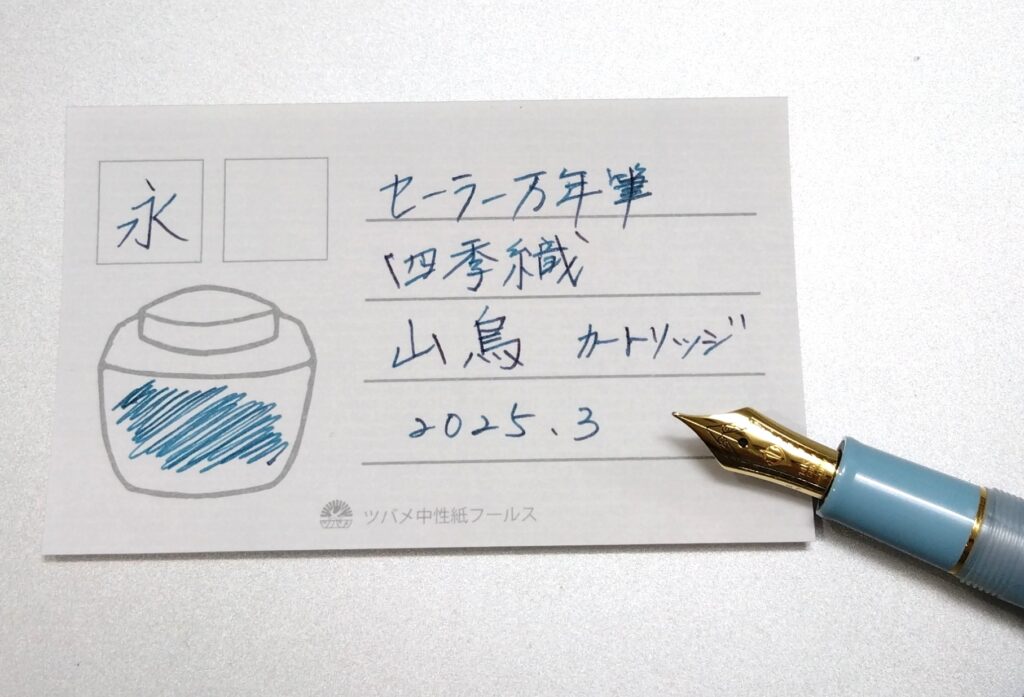 永
セーラー万年筆
四季織
山鳥 カートリッジ
2025.3
ツバメ中性紙フールス